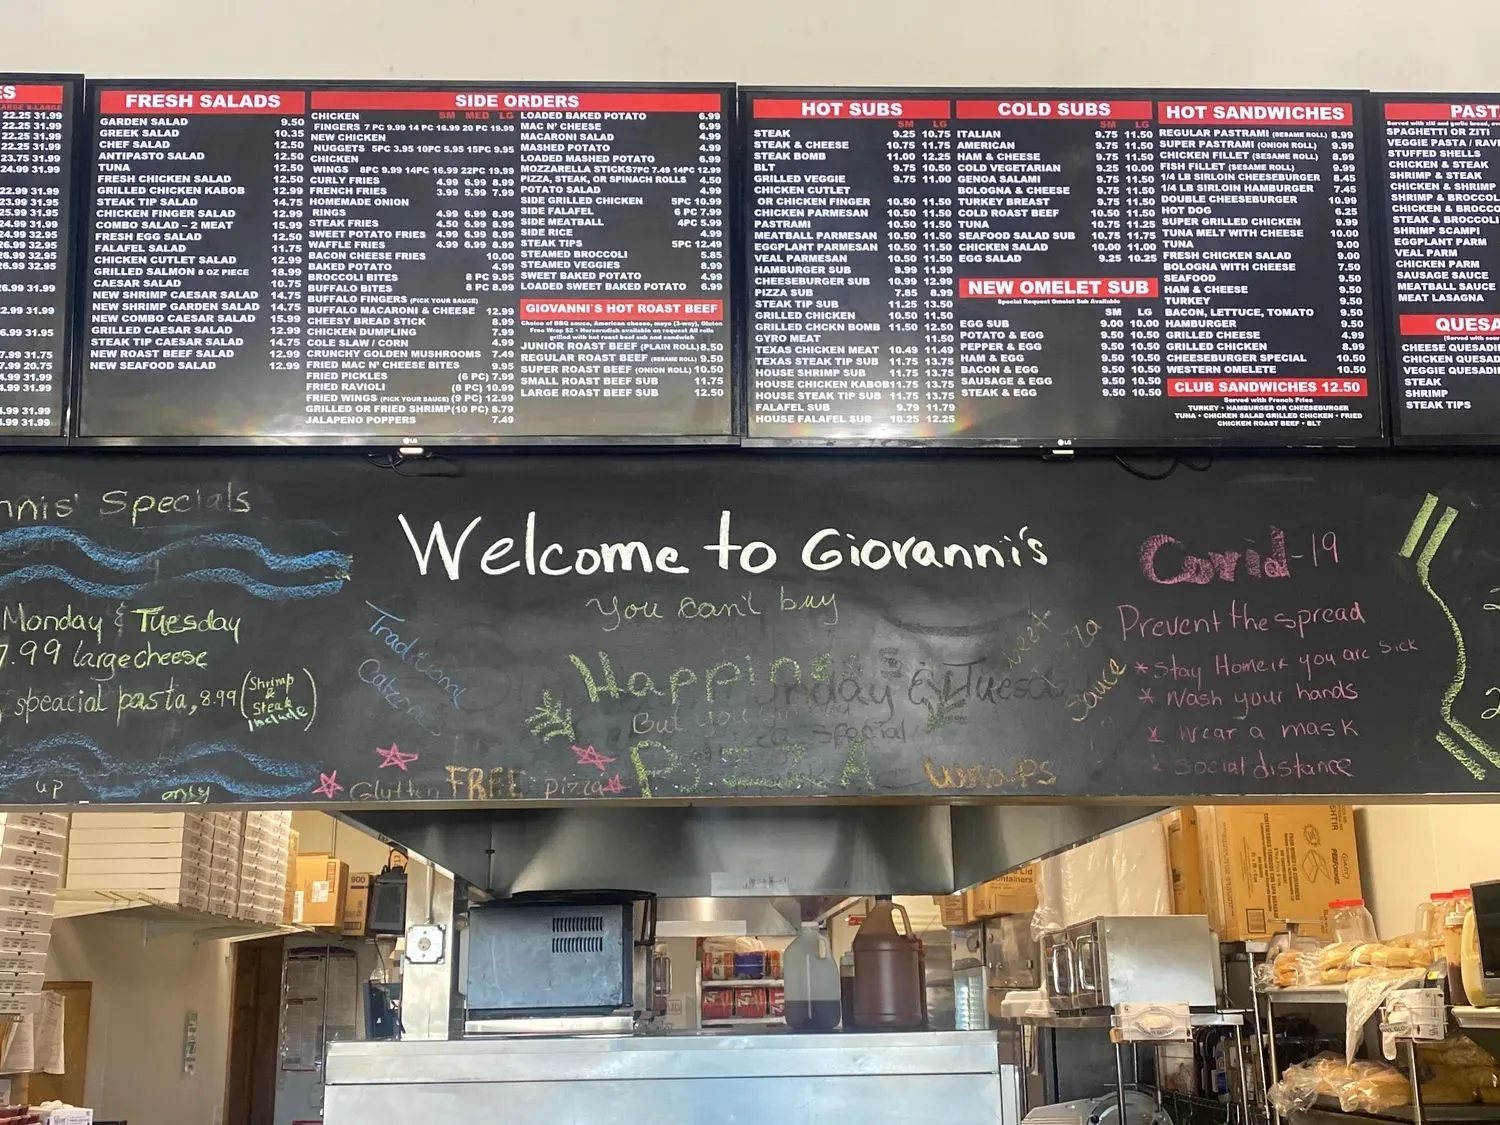 LARGE X-LARGE
22.25 31.99
22.25 31.99
22.25 31.99
23.75 31.99
22.99 31.99
24.99 31.99
25.99 31.99
24.99 31.99
24.99 32.95
26.99 32.95
26.99 32.95
FRESH SALADS
GARDEN SALAD 9.50
GREEK SALAD 10.35
CHEF SALAD 12.50
ANTIPASTO SALAD 12.50
TUNA 12.50
FRESH CHICKEN SALAD 12.50
GRILLED CHICKEN KABOB 12.99
STEAK TIP SALAD 14.75
CHICKEN FINGER SALAD 12.99
COMBO SALAD – 2 MEAT 15.99
FRESH EGG SALAD 12.50
FALAFEL SALAD 11.75
CHICKEN CUTLET SALAD 12.99
GRILLED SALMON 8 OZ PIECE 18.99
CAESAR SALAD 10.75
NEW SHRIMP CAESAR SALAD 14.75
NEW SHRIMP GARDEN SALAD 14.75
NEW COMBO CAESAR SALAD 15.99
GRILLED CAESAR SALAD 12.99
STEAK TIP CAESAR SALAD 14.75
NEW ROAST BEEF SALAD 12.99
NEW SEAFOOD SALAD 12.99
SIDE ORDERS
CHICKEN SM MED LG
FINGERS 7 PC 9.99 14 PC 16.99 20 PC 19.99
NEW CHICKEN
NUGGETS 5PC 3.95 10PC 5.95 15PC 9.95
CHICKEN
WINGS 8PC 9.99 14PC 16.99 22PC 19.99
CURLY FRIES 4.99 6.99 8.99
FRENCH FRIES 3.99 5.99 7.99
HOMEMADE ONION
RINGS 4.99 6.99 8.99
STEAK FRIES 4.50 6.99 8.99
SWEET POTATO FRIES 4.99 6.99 8.99
WAFFLE FRIES 4.99 6.99 8.99
BACON CHEESE FRIES 10.00
BAKED POTATO 4.99
BROCCOLI BITES 8 PC 9.95
BUFFALO BITES 8 PC 8.99
BUFFALO FINGERS (PICK YOUR SAUCE)
BUFFALO MACARONI & CHEESE 12.99
CHEESY BREAD STICK 8.99
CHICKEN DUMPLING 7.99
COLE SLAW / CORN 4.99
CRUNCHY GOLDEN MUSHROOMS 7.49
FRIED MAC N' CHEESE BITES 9.95
FRIED PICKLES (6 PC) 7.99
FRIED RAVIOLI (8 PC) 10.99
FRIED WINGS (PICK YOUR SAUCE) (9 PC) 12.99
GRILLED OR FRIED SHRIMP (10 PC) 8.79
JALAPENO POPPERS 7.49
LOADED BAKED POTATO 6.99
MAC N' CHEESE 6.99
MACARONI SALAD 4.99
MASHED POTATO 4.99
LOADED MASHED POTATO 6.99
MOZZARELLA STICKS 7PC 7.49 14PC 12.99
PIZZA, STEAK, OR SPINACH ROLLS 4.50
POTATO SALAD 4.99
SIDE GRILLED CHICKEN 5PC 10.99
SIDE FALAFEL 6 PC 7.99
SIDE MEATBALL 4PC 5.99
SIDE RICE 4.99
STEAK TIPS 5PC 12.49
STEAMED BROCCOLI 5.85
STEAMED VEGGIES 8.99
SWEET BAKED POTATO 4.99
LOADED SWEET BAKED POTATO 6.99
GIOVANNI'S HOT ROAST BEEF
Choice of BBQ sauce, American cheese, mayo (3-way), Gluten
Free Wrap $2 • Horseradish available on request All rolls
grilled with hot roast beef sub and sandwich
JUNIOR ROAST BEEF (PLAIN ROLL) 8.50
REGULAR ROAST BEEF (SESAME ROLL) 9.50
SUPER ROAST BEEF (ONION ROLL) 10.50
SMALL ROAST BEEF SUB 11.75
LARGE ROAST BEEF SUB 12.50
HOT SUBS
SM LG
STEAK 9.25 10.75
STEAK & CHEESE 10.75 11.75
STEAK BOMB 11.00 12.25
BLT 9.75 10.50
GRILLED VEGGIE 9.75 11.00
CHICKEN CUTLET
OR CHICKEN FINGER 10.50 11.50
CHICKEN PARMESAN 10.50 11.50
PASTRAMI 10.50 11.50
MEATBALL PARMESAN 10.50 11.50
EGGPLANT PARMESAN 10.50 11.50
VEAL PARMESAN 10.50 11.50
HAMBURGER SUB 9.99 11.99
CHEESEBURGER SUB 10.99 12.99
PIZZA SUB 7.85 8.99
STEAK TIP SUB 11.25 13.50
GRILLED CHICKEN 10.50 11.50
GRILLED CHCKN BOMB 11.50 12.50
GYRO MEAT 11.50
TEXAS CHICKEN MEAT 10.49 11.49
TEXAS STEAK TIP SUB 11.75 13.75
HOUSE SHRIMP SUB 11.75 13.75
HOUSE CHICKEN KABOB 11.75 13.75
HOUSE STEAK TIP SUB 11.75 13.75
FALAFEL SUB 9.79 11.79
HOUSE FALAFEL SUB 10.25 12.25
COLD SUBS
SM LG
ITALIAN 9.75 11.50
AMERICAN 9.75 11.50
HAM & CHEESE 9.75 11.50
COLD VEGETARIAN 9.25 10.00
GENOA SALAMI 9.75 11.50
BOLOGNA & CHEESE 9.75 11.50
TURKEY BREAST 9.75 11.50
COLD ROAST BEEF 10.50 11.50
TUNA 10.75 11.25
SEAFOOD SALAD SUB 10.75 11.75
CHICKEN SALAD 10.00 11.00
EGG SALAD 9.25 10.25
NEW OMELET SUB
Special Request Omelet Sub Available
SM LG
EGG SUB 9.00 10.00
POTATO & EGG 9.50 10.50
PEPPER & EGG 9.50 10.50
HAM & EGG 9.50 10.50
BACON & EGG 9.50 10.50
SAUSAGE & EGG 9.50 10.50
STEAK & EGG 9.50 10.50
HOT SANDWICHES
REGULAR PASTRAMI (SESAME ROLL) 8.99
SUPER PASTRAMI (ONION ROLL) 9.99
CHICKEN FILLET (SESAME ROLL) 8.99
FISH FILLET (SESAME ROLL) 9.99
1/4 LB SIRLOIN CHEESEBURGER 8.45
1/4 LB SIRLOIN HAMBURGER 7.45
DOUBLE CHEESEBURGER 10.99
HOT DOG 6.25
SUPER GRILLED CHICKEN 9.99
TUNA MELT WITH CHEESE 10.00
TUNA 9.00
FRESH CHICKEN SALAD 9.00
BOLOGNA WITH CHEESE 7.50
SEAFOOD 9.50
HAM & CHEESE 9.50
TURKEY 9.50
BACON, LETTUCE, TOMATO 9.50
HAMBURGER 9.50
GRILLED CHEESE 4.99
GRILLED CHICKEN 8.99
CHEESEBURGER SPECIAL 10.50
WESTERN OMELETE 10.50
CLUB SANDWICHES 12.50
Served with French Fries
TURKEY • HAMBURGER OR CHEESEBURGER
TUNA • CHICKEN SALAD GRILLED CHICKEN • FRIED
CHICKEN ROAST BEEF • BLT
PAST
SPAGHETTI OR ZITI
VEGGIE PASTA / RAVI
STUFFED SHELLS
CHICKEN & STEAK
SHRIMP & STEAK
CHICKEN & SHRIMP
SHRIMP & BROCCOL
CHICKEN & BROCCO
STEAK & BROCCOLI
SHRIMP SCAMPI
EGGPLANT PARM
VEAL PARM
CHICKEN PARM
SAUSAGE SAUCE
MEATBALL SAUCE
MEAT LASAGNA
QUESA
CHEESE QUESADI
CHICKEN QUESAD
VEGGIE QUESADI
STEAK
SHRIMP
STEAK TIPS
LG
LG
nnis' Specials
Monday & Tuesday
7.99 large cheese
speacial pasta, 8.99 (Shrimp & Steak include)
up only
Welcome to Giovanni's
You can't buy
Happiness
But you
PIZZA
Traditional
Catering
Glutten FREE Pizza
Wraps
Sauce
Covid-19
Prevent the spread
* Stay Home if you are sick
* Wash your hands
* Wear a mask
* Social distance